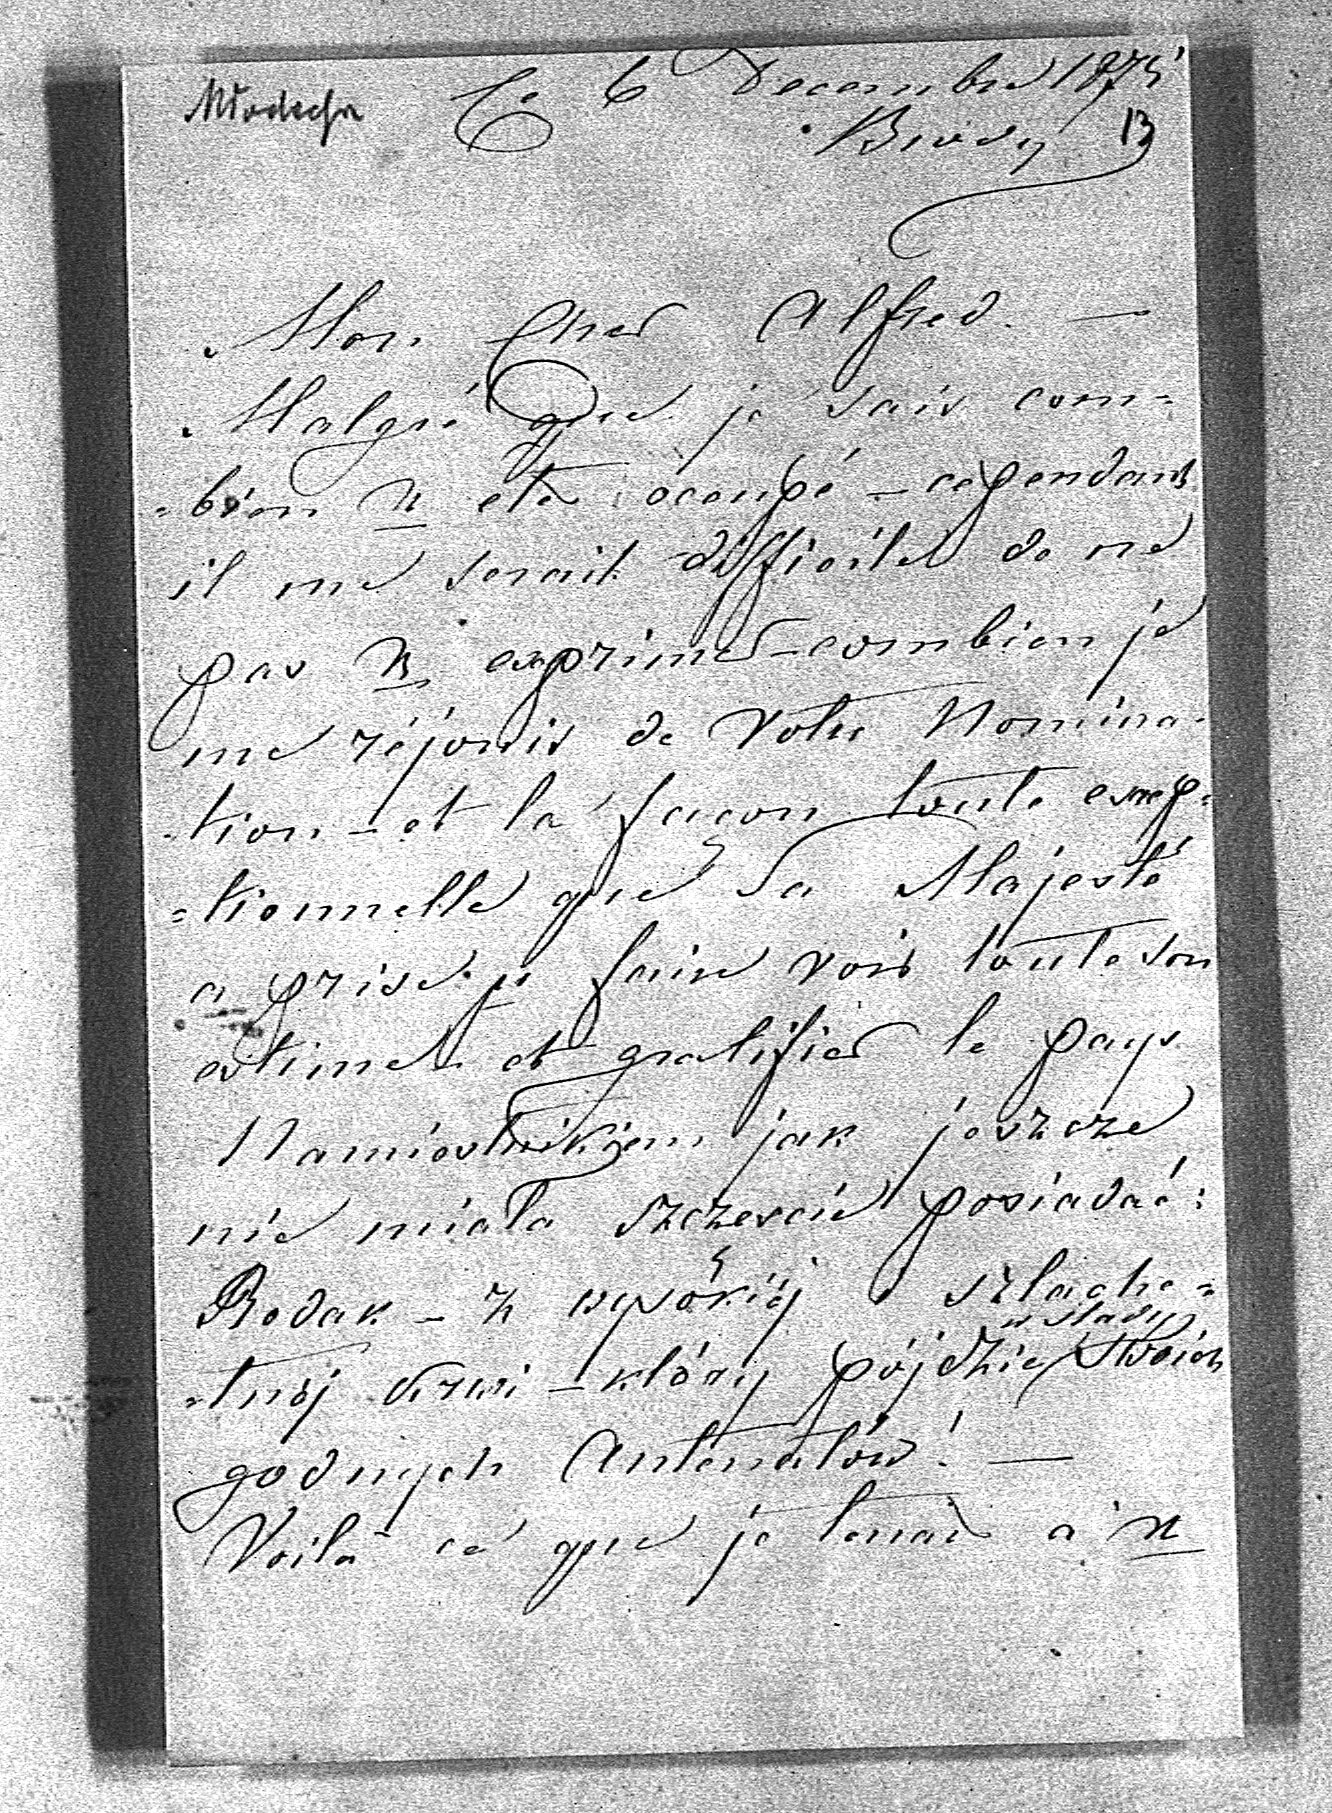 Młodecka
Ce 6 Decembre 1875
Brody 13
Mon Cher Alfred. —
Malgré que je sais com=
=bien v. ete ocoupé – cependant
il me serait difficile de ne
pas v. exprimer – combien je
me réjouis de votre Nomina-
-tion – et la façon toute exep=
=tionnelle que Sa Majesté
a prise pr faire voir toute son
estime – et gratifier le pays
Namiestnikiem jak jeszcze
nie miała szczescie posiadać:
Rodak – z wysokiéj i szlache=
w slady
=tnéj krwi – który pójdzie Swoich
godnych Antenatów! —
Voila cé que je tenai a v